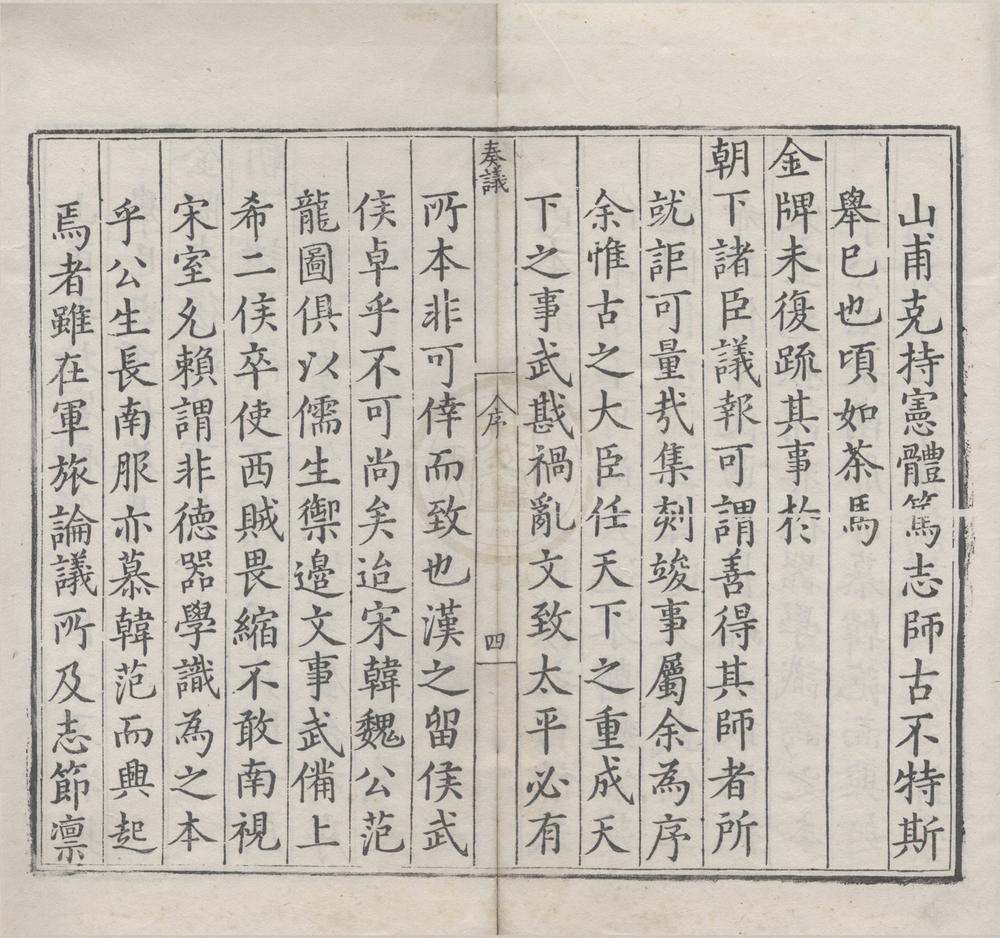 山甫克持憲體篤志師古不特斯
舉巳也頃如茶馬
金牌未復疏其事於
朝下諸臣議報可謂善得其師者所
就詎可量㢤集刻竣事屬余為序
余惟古之大臣任天下之重成天
下之事武戡禍亂文致太平必有
奏議
序
四
所本非可倖而致也漢之留侯武
侯卓乎不可尚矣迨宋韓魏公范
龍圖俱以儒生禦邊文事武備上
希二侯卒使西賊畏縮不敢南視
宋室允賴謂非德器學識為之本
乎公生長南服亦慕韓范而興起
焉者雖在軍旅論議所及志節凛